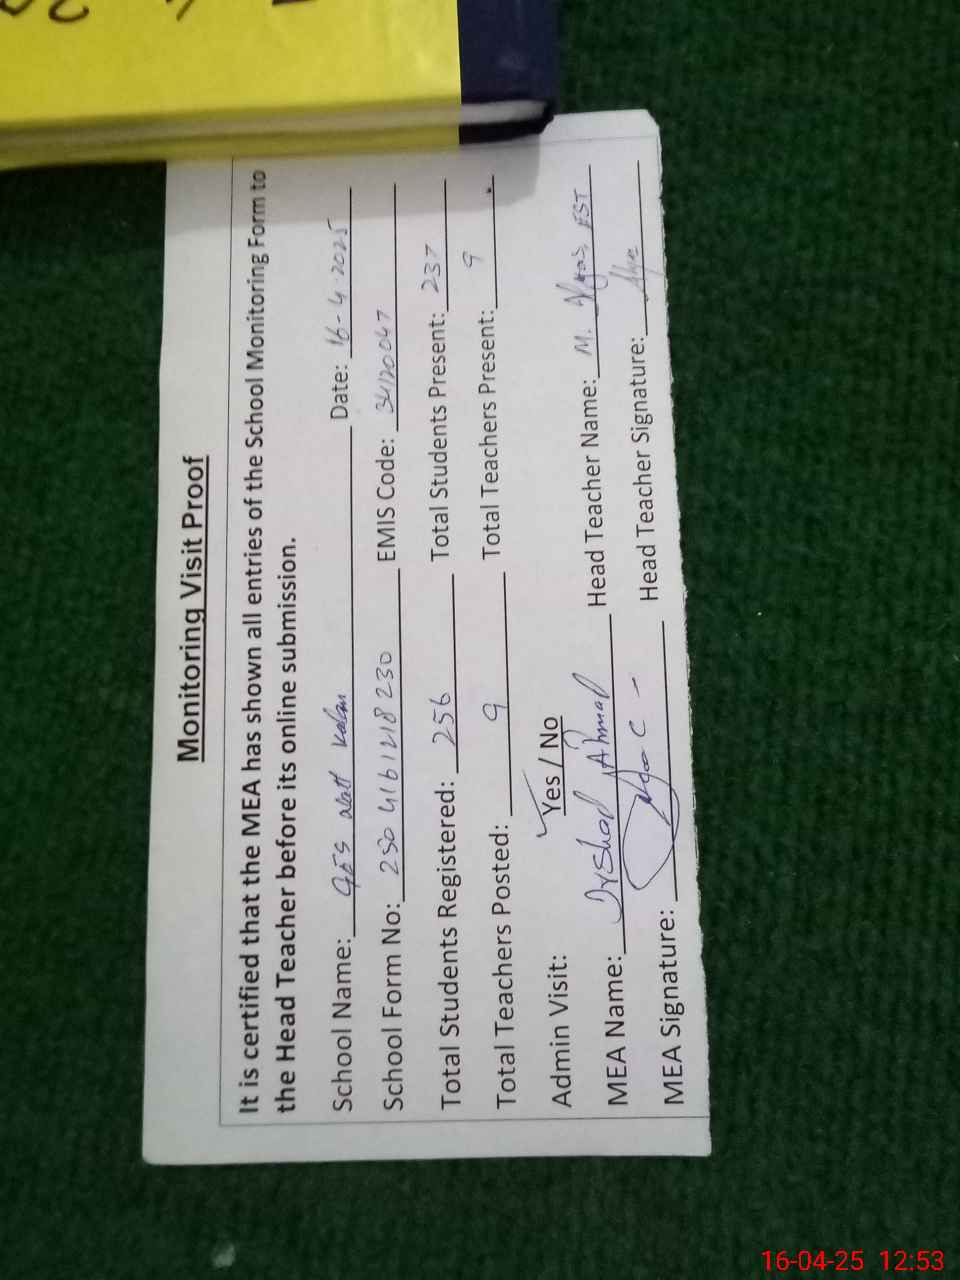 Monitoring Visit Proof
It is certified that the MEA has shown all entries of the School Monitoring Form to
the Head Teacher before its online submission.
School Name: GES Kalan Date: 16-4-2025
School Form No: 250 4161218230 EMIS Code: 34120047
Total Students Registered: 256 Total Students Present: 237
Total Teachers Posted: 9 Total Teachers Present: 9
Admin Visit: Yes / No
MEA Name: Irshad Ahmad Head Teacher Name: M. EST
MEA Signature: Head Teacher Signature:
16-04-25 12:53